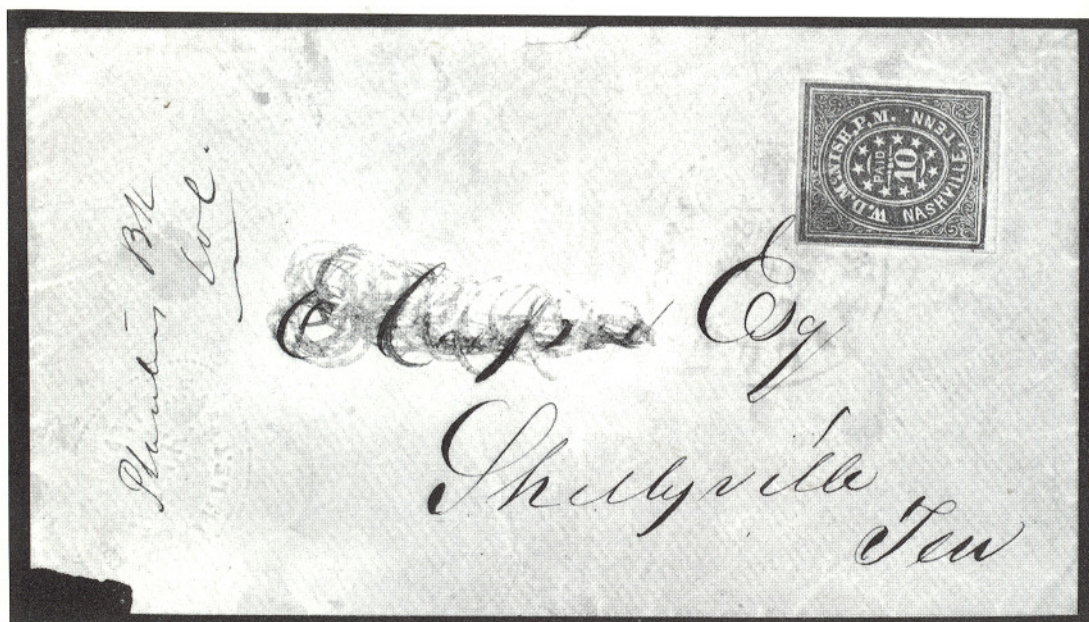 Planters Bk
Col.
W.D. McNISH, P.M.
NASHVILLE TENN
PAID
10
Esq
Shelbyville
Ten